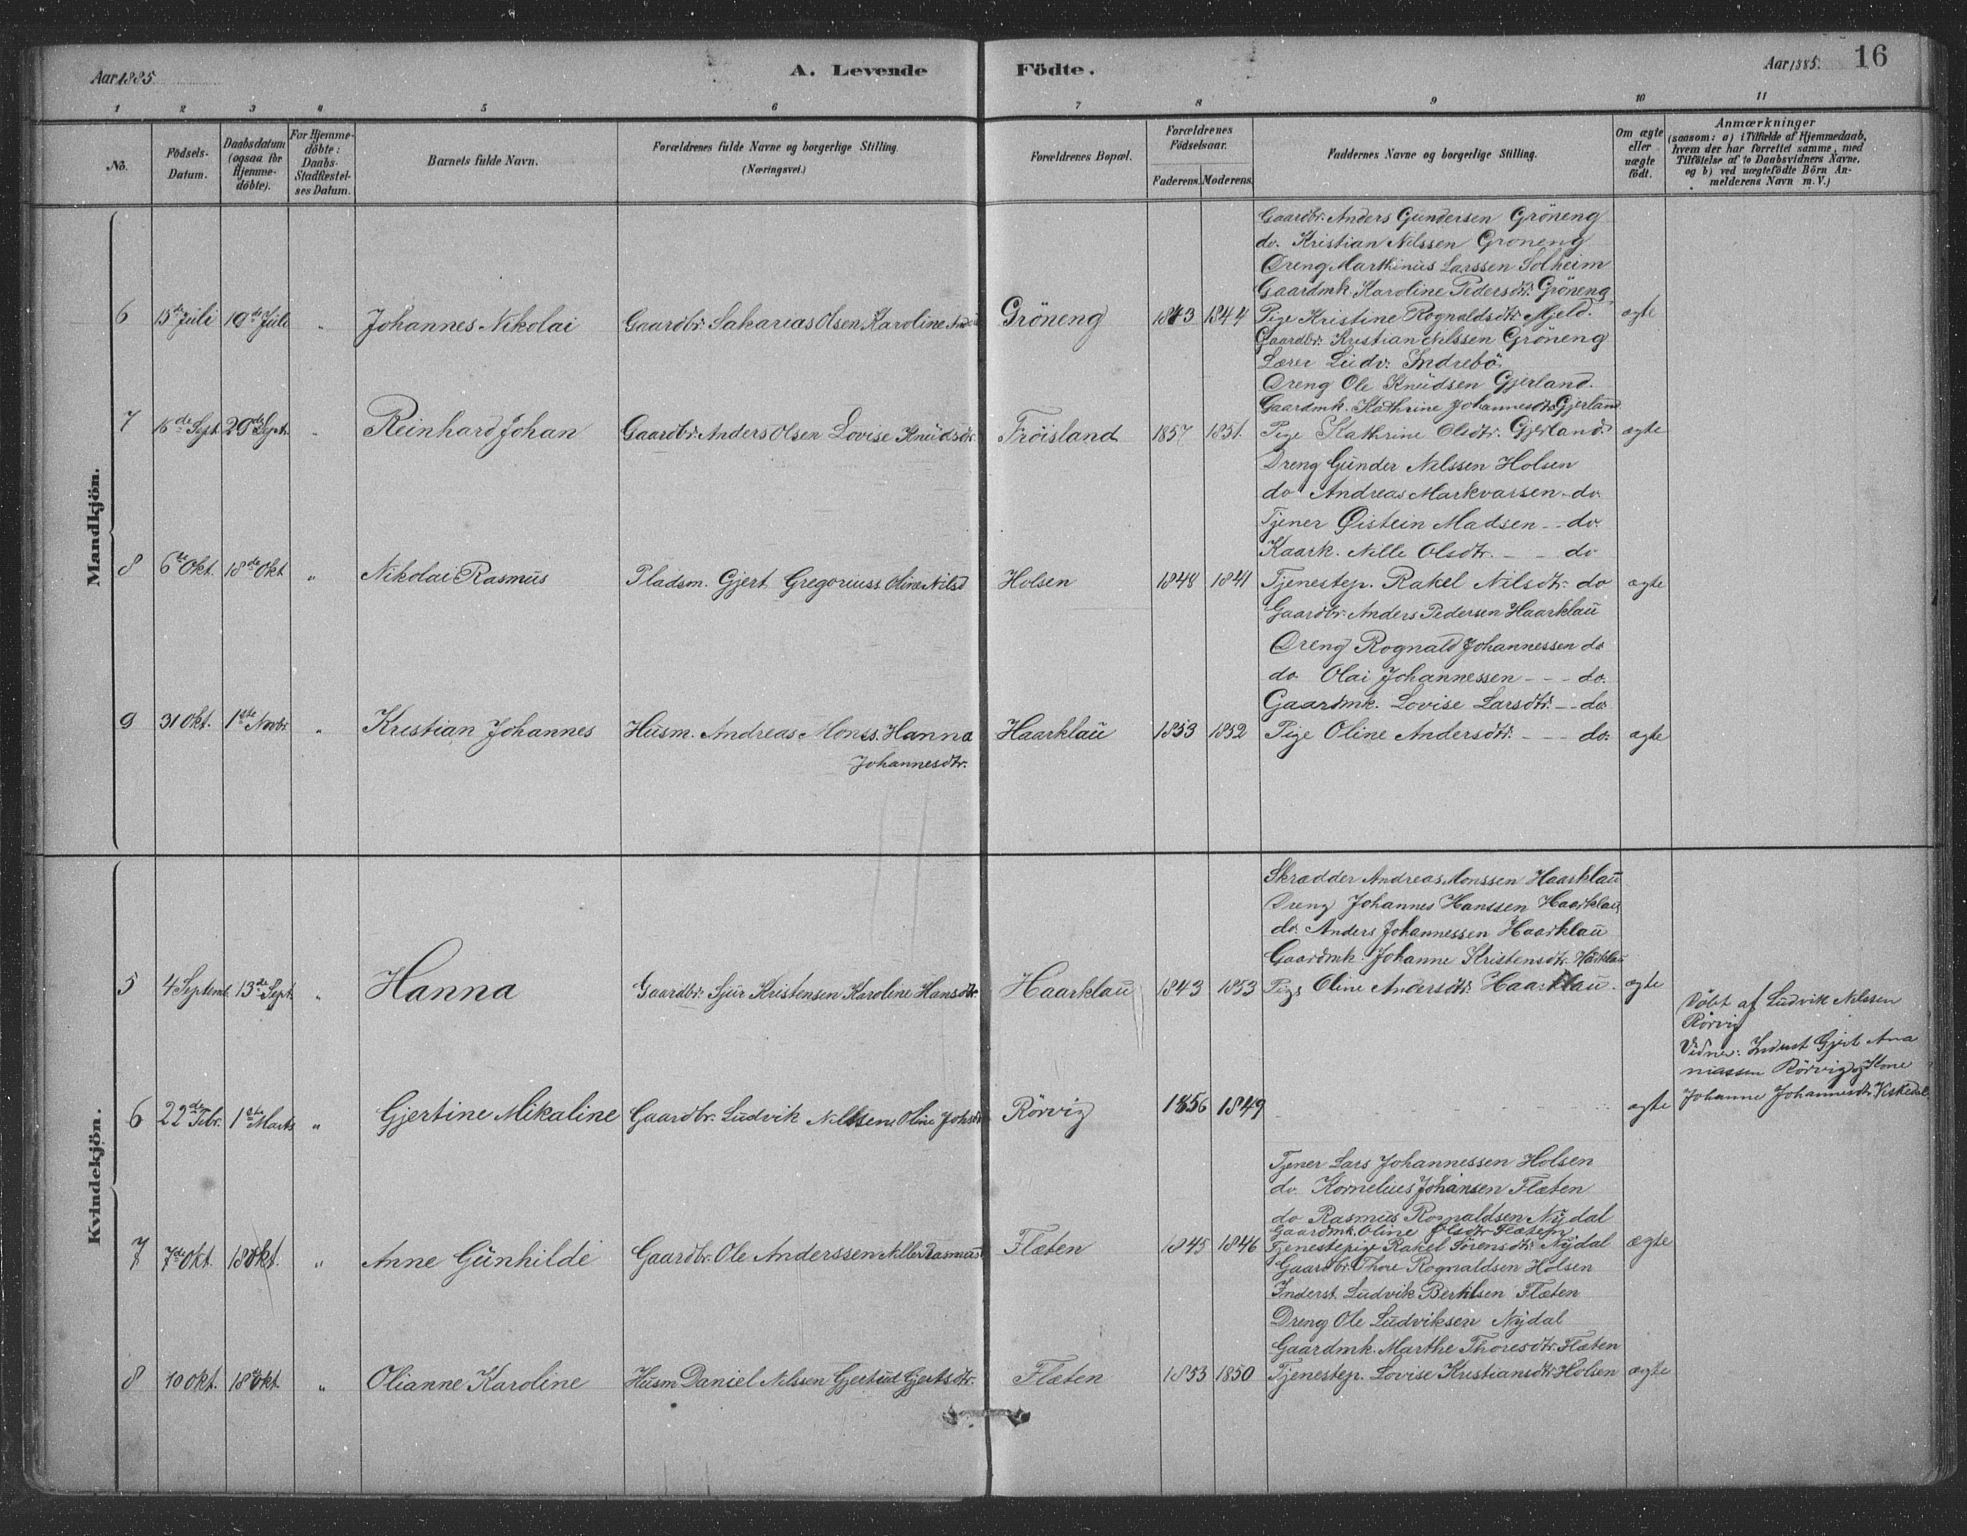 Aar 1885.
A. Levende Födte.
Aar 1885.
16
1 2 3 4 5 6 7 8 9 10 11
No.
Födsels-Datum.
Daabsdatum (ogsaa för Hjemmedöbte).
For Hjemmedöbte: Daabs-Stadfestelses Datum.
Barnets fulde Navn.
Forældrenes fulde Navne og borgerlige Stilling. (Næringsvei.)
Forældrenes Bopæl.
Forældrenes Födselsaar.
Faderens. Moderens.
Faddernes Navne og borgerlige Stilling.
Om ægte eller uægte födt.
Anmærkninger
(saasom: a) i Tilfælde af Hjemmedaab,
hvem der har forrettet samme, med
Tilföielse af to Daabsvidners Navne,
og b) ved uægtefödte Börn Anmelderens Navn m. V.)
Mandkjön.
Gaardbr. Anders Gundersen Gröneng
do. Kristian Nilssen Gröneng
Dreng Marthinus Larssen Solheim
Gaardmk. Karoline Pedersdtr. Gröneng
6 15de Juli 19de Juli " Johannes Nikolai Gaardbr. Sakarias Olsen Karoline Gröneng 1843 1844 Pige Kristine Rognaldsdtr. Mjeld. ægte
Gaardbr. Kristian Nilssen Gröneng
Lærer Ludv. Indrebö
Dreng Ole Knudsen Gjerland.
Gaardmk. Kathrine Johannesdtr. Gjerland
7 16de Sept. 29de Sept. " Reinhard Johan Gaardbr. Anders Olsen Lovise Knudsdtr. Fröisland 1857 1851. Pige Kathrine Olsdtr. Gjerland ægte
Dreng Gunder Nilssen Holsen
do Andreas Markvassen - do.
Tjener Øistein Madsen - - do.
Kaark. Nille Olsdtr. - - do
8 6te Okt. 18de Okt " Nikolai Rasmus Pladsm. Gjert Gregoriuss. Oline Nilsd Holsen 1848 1841 Tjenestep. Rakel Nilsdtr. do ægte
Gaardbr. Anders Pedersen Haarklau
Dreng Rognald Johannessen do
do Olai Johannessen - - - do.
Gaardmk. Lovise Larsdtr. - - do
9 31 Okt. 1ste Novbr. " Kristian Johannes Husm. Andreas Monss. Hanna Haarklau 1853 1852 Pige Oline Andersdtr. - - - do. ægte
Johannesdtr.
Kvindekjön.
Skrædder Andreas Monssen Haarklau
Dreng Johannes Hanssen Haarklau
do. Anders Johannessen Haarklau
Gaardmk. Johanne Kristensdtr. Harklau
5 4 Septemb. 13de Sept. " Hanna Gaardbr. Sjur Kristensen Karoline Hansdtr. Haarklau 1843 1853 Pige Oline Andersdtr. Haarklau. ægte
Döbt af Ludvik Nilssen
Rörvig
Vidner: Inderst Gjert Ana
niassen Rörvig og Kone
6 22de Febr. 1ste Marts " Gjertine Mikaline Gaardbr. Ludvik Nilssen Oline Johsdtr Rörvig 1856 1849 ægte Johanne Johannesdtr.
Tjener Lars Johannessen Holsen
do. Kornelius Johansen Flæten
do Rasmus Romaldsen Nydal
Gaardmk. Oline Olsdtr. Flæten
7 7de Okt. 18 Okt. " Anne Gunhilde Gaardbr. Ole Anderssen Flæten 1845 1846 Tjenestepige Rakel Sörensdtr. Nydal ægte
Gaardbr. Thore Rognaldsen Holsen
Inderst. Ludvik Bertilsen Flæten
Dreng Ole Ludviksen Nydal
Gaardmk. Marthe Thoresdtr. Flæten
8 10 Okt. 18 Okt. " Olianne Karoline Husm Daniel Nilssen Gjertud Gjertsdtr. Flæten 1853 1850 Tjenestep. Lovise Kristiansdtr. Holsen ægte